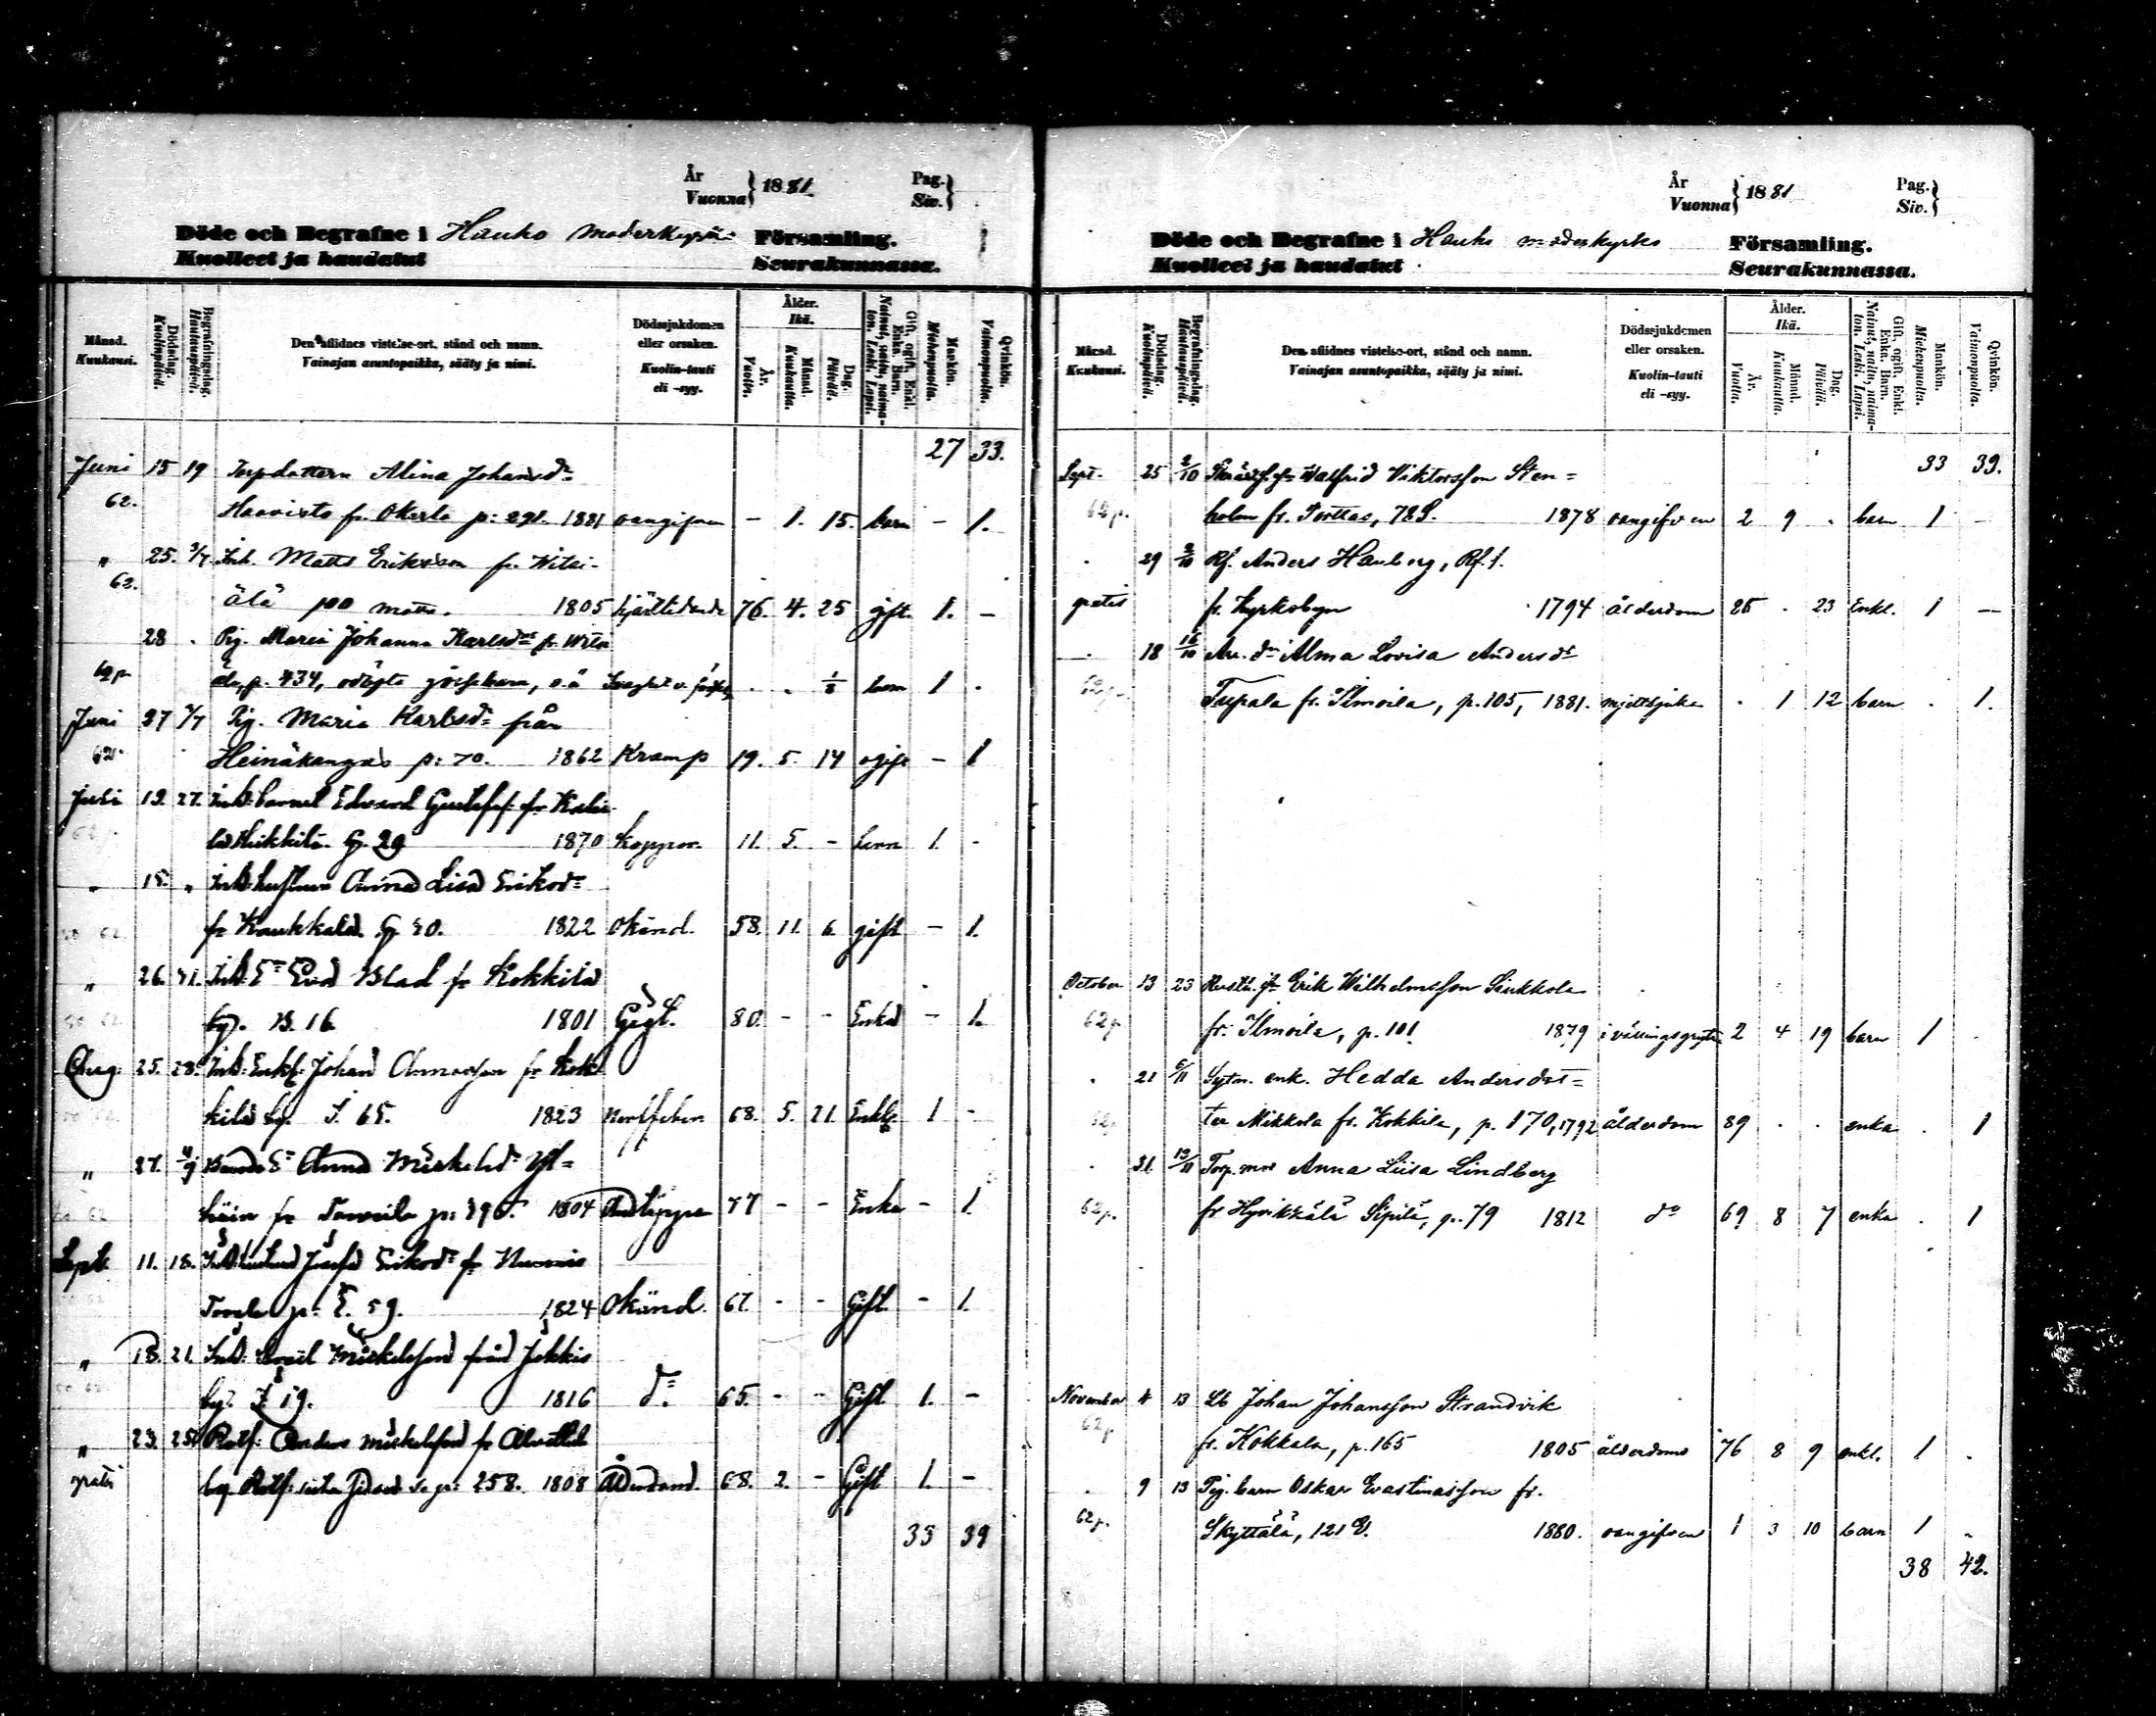 År
Vuonna } 1881
Pag.
Siv. }
Döde och Begrafne i Hauho Moderkyrko Församling.
Kuolleet ja haudatut Seurakunnassa.
Månad. Kuukausi.
Dödsdag. Kuolinpäivä.
Begrafningsdag. Hautauspäivä.
Den aflidnes vistelse-ort, stånd och namn.
Vainajan asuntopaikka, sääty ja nimi.
Dödssjukdomen eller orsaken.
Kuolin-tauti eli -syy.
Ålder. Ikä.
År. Vuotta.
Månad. Kuukautta.
Dag. Päivää.
Gift, ogift, Enkl. Enka. Barn. Nainut, naitu, naimaton. Leski. Lapsi.
Mankön. Miehenpuolta.
Qvinkön. Vaimonpuolta.
27 33.
Juni 15 19 Torpdottern Alina Johansdr
62. Haavisto fr. Okerla p: 291. 1881 oangifven – 1. 15. barn – 1.
" 25. 3/7. Inh. Matts Eriksson fr. Witsi-
62. älä 100 1805 hjärtlidande 76. 4. 25 gift. 1. –
28 . Pig. Maria Johanna Karlsdrs fr. Witsi
62 p älä, p. 434, odöpta gossebarn, o.ä . . 1/8 barn 1 .
Juni 27 3/7 Pig. Maria Karlsdr från
62 Heinäkangas p: 70. 1862 Kramp 19. 5. 14 ogift – 1
Juli 19. 27. Inh. barnet Edvard Gustafss. fr.
62 p. 29 1870 Koppor. 11. 5. – barn 1. -
" 15. " Inh. hustrun Anna Lisa Eriksdr
62. fr Kaukkala 40. 1822 Okänd. 58. 11. 6. gift – 1.
" 26. 31. Inh. Ea Eva Blad fr Kokkila
62. by. B. 16. 1801 Gigt. 80. - - Enka – 1.
Aug. 25. 28. Inh. Enkl. Johan fr Kok
kila by. 65. 1823 68. 5. 21. Enkl. 1 -
" 27. 4/9 Ea Anna Mickelsdr
62 fr p: 1804 77 - - Enka - 1
Sept. 11. 18. Inh. hustrun Josefa Eriksdr fr Nummis
p: E. 59. 1824 Okänd. 67. - - Gift - 1.
" 18. 21. Inh. Mickelsson från Jokkis
by. 19. 1816 do 65. - - Gift 1. -
" 23. 25. Rotf. Anders Mickelsson fr Alvettula
gratis by p: 258. 1808 Ålderdom. 68. 2. - Gift 1. -
33 39
År
Vuonna } 1881
Pag.
Siv. }
Döde och Begrafne i Hauho moderkyrko Församling.
Kuolleet ja haudatut Seurakunnassa.
Månad. Kuukausi.
Dödsdag. Kuolinpäivä.
Begrafningsdag. Hautauspäivä.
Den aflidnes vistelse-ort, stånd och namn.
Vainajan asuntopaikka, sääty ja nimi.
Dödssjukdomen eller orsaken.
Kuolin-tauti eli -syy.
Ålder. Ikä.
År. Vuotta.
Månad. Kuukautta.
Dag. Päivää.
Gift, ogift, Enkl. Enka. Barn. Nainut, naitu, naimaton. Leski. Lapsi.
Mankön. Miehenpuolta.
Qvinkön. Vaimonpuolta.
33 39.
Sept. 25 2/10 Walfrid Viktorsson Sten=
62 p. holm fr. Porttas, 72 1878 oangifven 2 9 . barn 1 -
. 29 2/10 Rf. Anders Hauberg, Rf. 1.
gratis fr. Kyrkobyn 1794 ålderdom 86 . 23 Enkl. 1 –
. 18 16/10 Arr. dr Alma Lovisa Andersdr
62 p. Tupala fr. Ilmoila, p. 105, 1881. mjeltsjuka . 1 12 barn . 1.
October 13 23 Rusth. Erik Wilhelmsson Säkkola
62 p. fr. Ilmoila, p. 101 1879 i vällingsgryta 2 4 19 barn 1 .
. 21 6/11 Sytn. enk. Hedda Andersdot=
62 p ter Mikkola fr. Kokkila, p. 170, 1792 ålderdom 89 . . enka . 1
. 31 13/11 Torp. mor Anna Liisa Lindberg
62 p. fr Hyvikkälä Sipilä, p. 79 1812 do 69 8 7 enka . 1
November 4 13 Lb Johan Johansson Strandvik
62 p fr. Kokkala, p. 165 1805 ålderdoms 76 8 9 enkl. 1 .
. 9 13 Pig. barn Oskar Evastinasson fr.
62 p. Skyttälä, 121 1880. oangifven 1 3 10 barn 1 .
38 42.